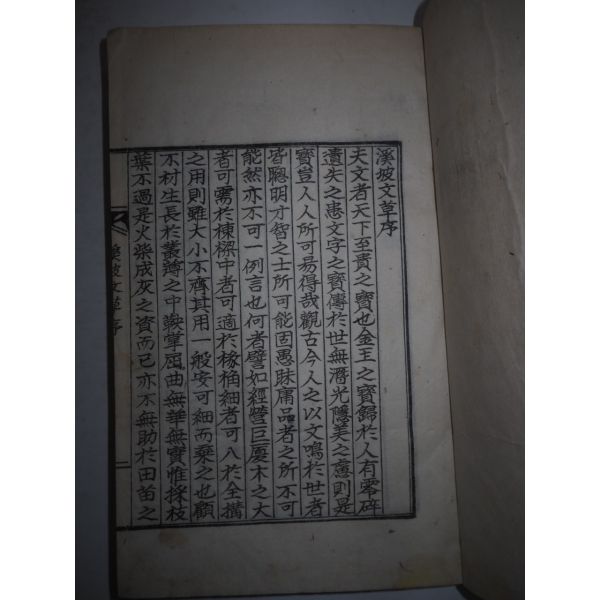 溪坡文草序
夫文者天下至貴之寶也金玉之寶歸於人有零碎
遺失之患文字之寶傳於世無潛光隱美之慮則是
寶豈人人所可易得哉觀古今人之以文鳴於世者
皆聰明才智之士所可能固愚昧庸品者之所不可
能然亦不可一例言也何者譬如經營巨厦木之大
者可需於棟樑中者可適於椽桷細者可入於全搆
之用則雖大小不齊其用一般安可細而棄之也顧
不材生長於叢薄之中鞅掌屈曲無華無實惟採枝
葉不過是火柴成灰之資而已亦不無助於田苗之
溪坡文草序